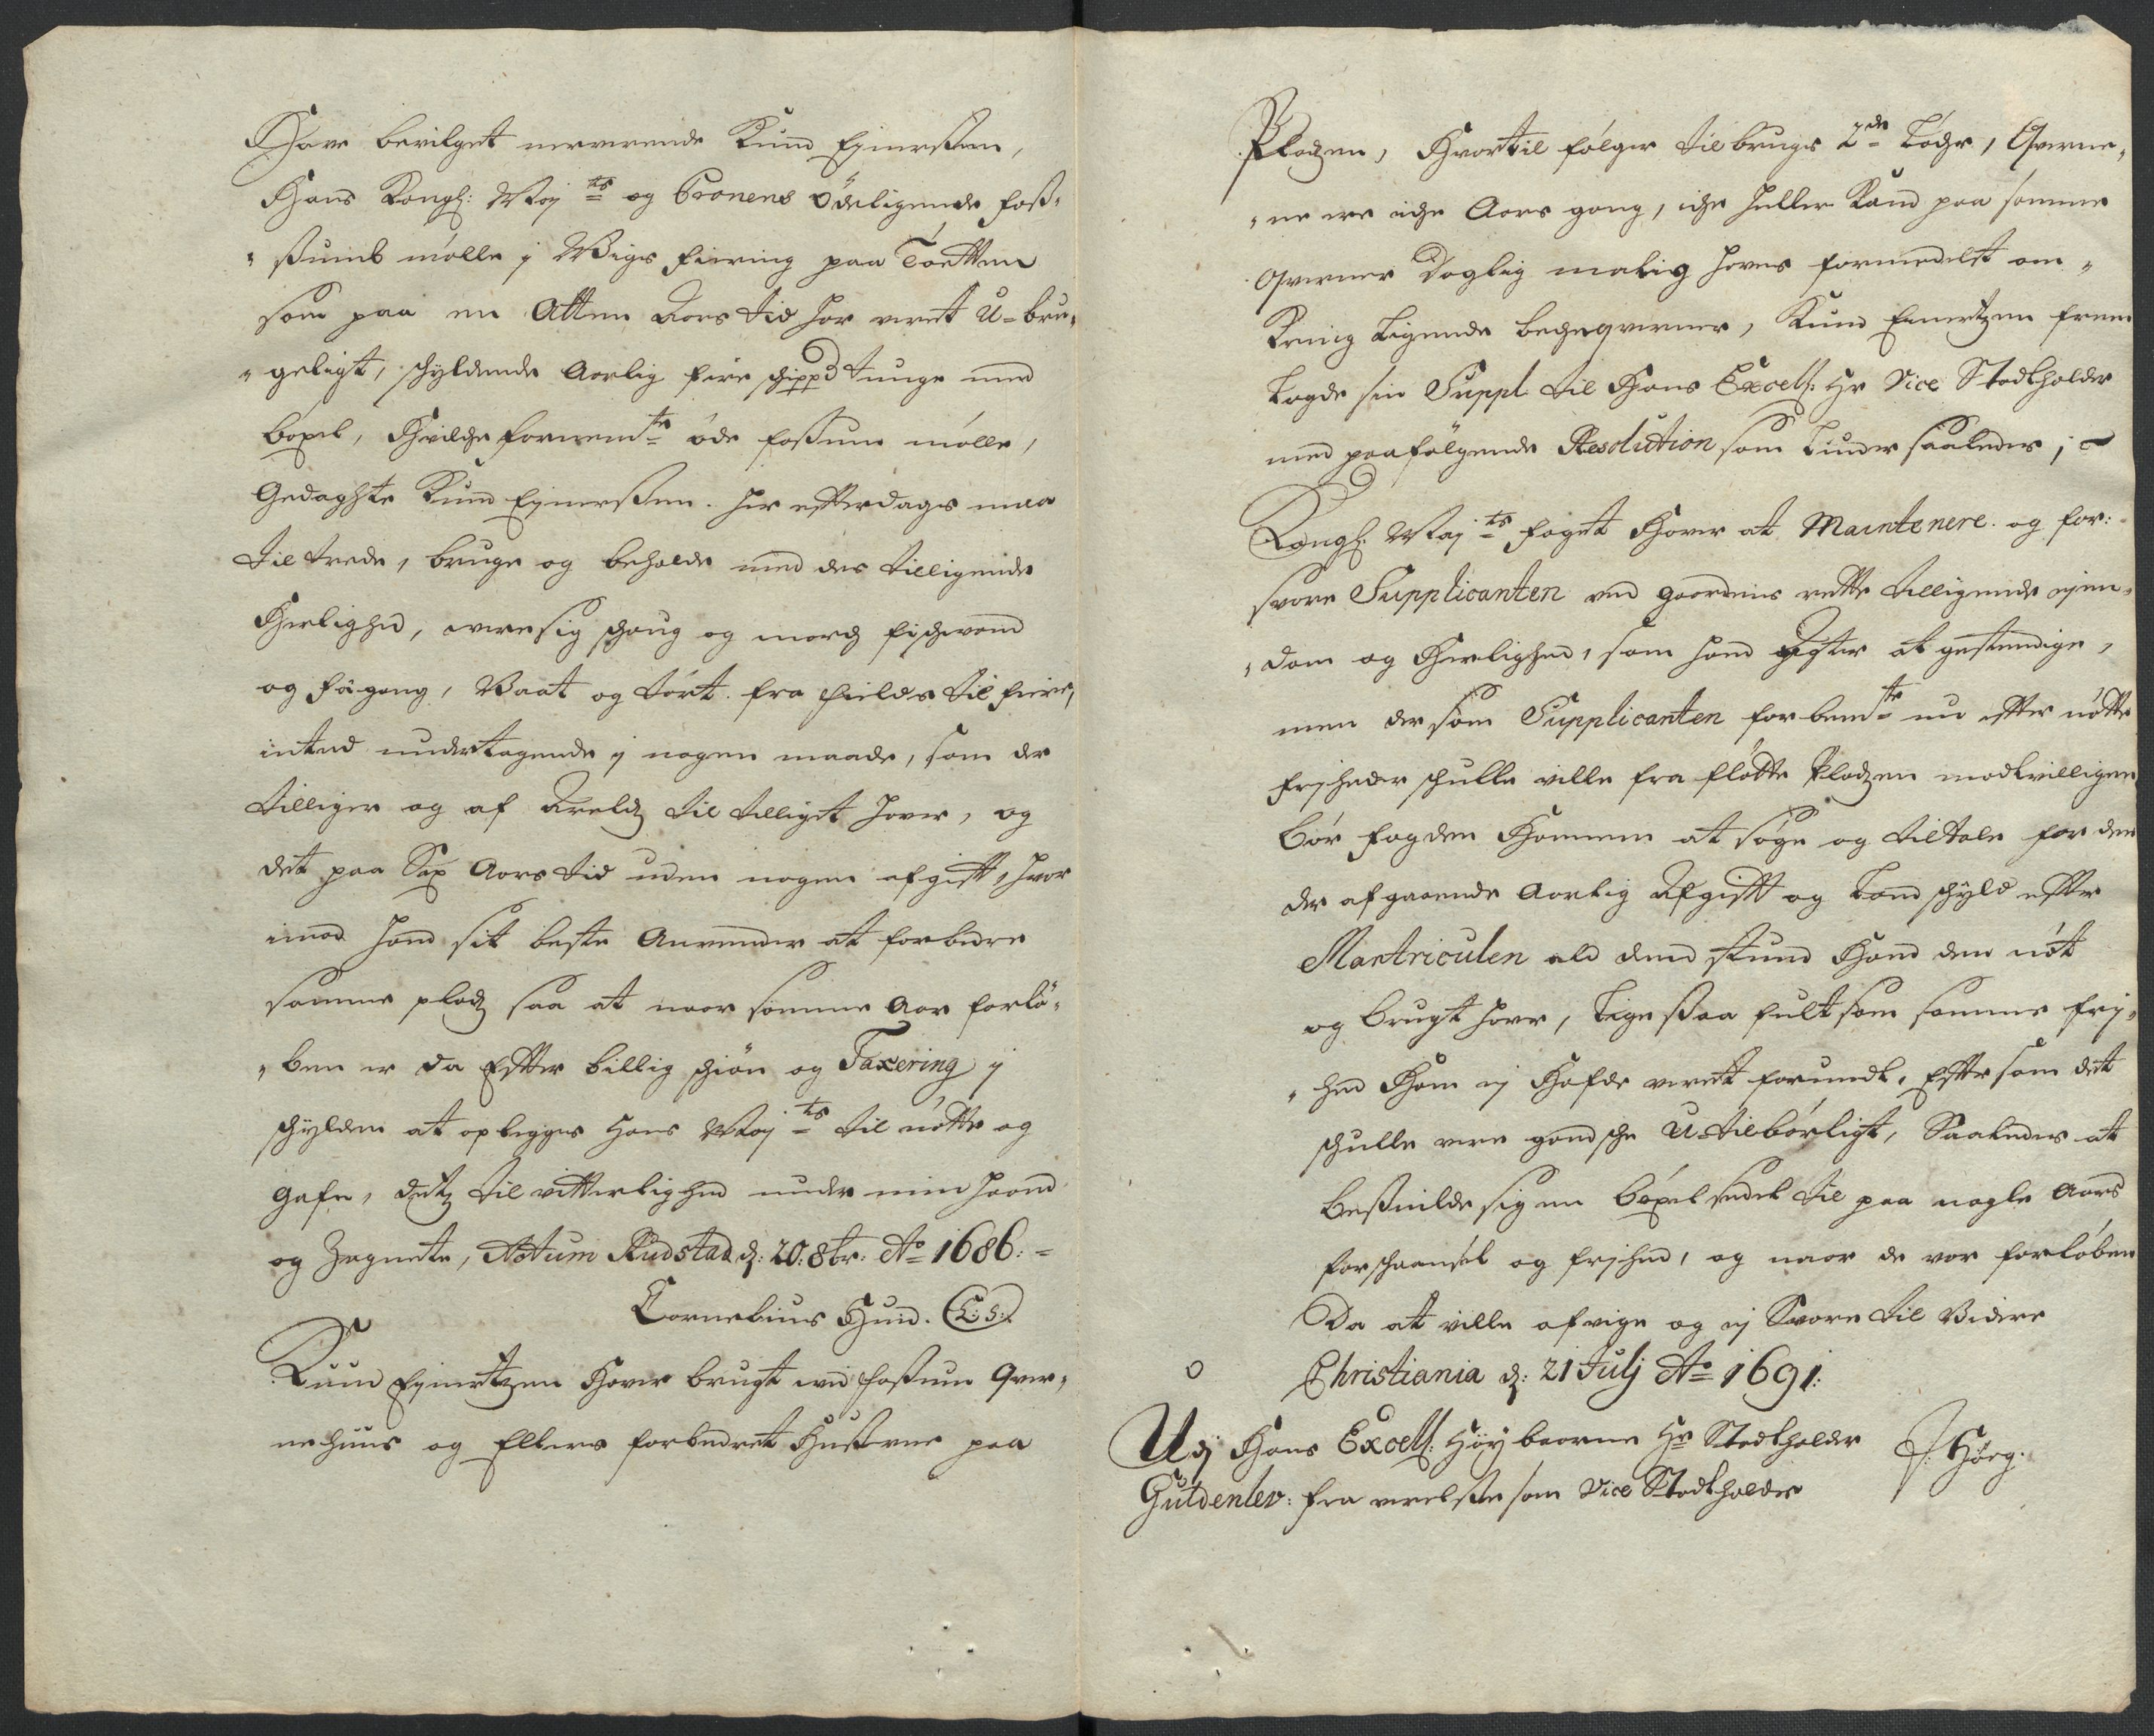 Hafve bevilget nerverende Knud Ejnerssøn,
Hans Kongl: May ts og Cronens Ødeligende foss-
"sumb mølle j Wiigs fiering paa Toetten
som paa en Atten Aars tid har veret U-bru-
"geligt, schyldende Aarlig fire schippd tunge med
bøxel, Hvilche forneffnte øde fossum mølle,
Gedagchte Knud Ejnerssøn her effterdags maa
til trede, bruge og beholde med des tilligende
Herlighed, averesig schoug og march fischevand
og fægang, Vaat og tørt fra fields til fiere,
inted undertagende j nogen maade, som der
tilliger og af Arelds til tilliget hafver, og
det paa Sex Aars tid uden nogen afgifft, hvor
imod hand sit beste Anvender at forbedre
samme plads saa at naar samme Aar forlø-
"ben er da Effter billig schiøn og Taxering j
schylden at oplegges Hans May ts til nøtte og
gafn, dets til vitterlighed under min haand
og Zegnete, Actum Rudstad d: 20: 8br: Ao 1686:-
Cornelius Hund. L:S:
Knud Ejnertzen Hafver brugt ved fossum Qver-
nehuus og Ellers forbedret Husserne paa
Pladzen, Hvortil følger til brugs 2de Løcher, Qverne-
"ne ere iche Aars gang, iche heller kand paa samme
Qverner daglig malig hafves formedelst om-
kring ligende bechqverner, Knud Ejnertzen frem
lagde sin Suppl: til Hans Excell: Hr Vice Stadtholder
med paafølgende Resolution som Liuder saaledes;
Kongl: May ts foget Hafver at Maintenere og for:
svare Supplicanten ved gaardens rette tilligende ejen-
"dom og Herlighed, som hand agter at gestendige,
men der som Supplicanten forbemte nu effter nøtte
frjheder schulle ville fra flødte Pladzen modtvilligen
bør fogden Hannem at søge og tiltale for den
der afgaaende Aarlig Afgifft og Landschyld effter
Martriculen ald dend stund Hand den nøt
og brugt hafver, ligessaa fult som samme frj-
"hed Ham ej Hafde veret forundt, Effter som det
schulle vere gandsche U-tilbørligt, Saaledes at
besnilde sig en bøxelsedel til paa nogle Aars
forschaansel og frjhed, og naar de var forløben
Da at ville afvige og ej Svare til Videre
Christiania d: 21 Julj Ao 1691:
Udj Hans Excell: Høy baarne Hr Stadtholder
Güldenlev: fra verelsse som Vice Stadtholder
J: Høeg.